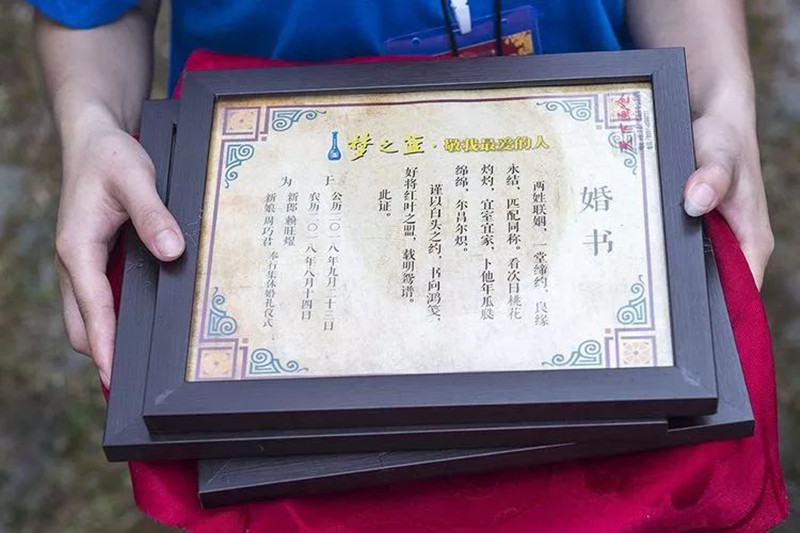 梦之蓝·敬我最爱的人
婚书
两姓联姻，一堂缔约，良缘
永结，匹配同称。看次日桃花
灼灼，宜室宜家，卜他年瓜瓞
绵绵，尔昌尔炽。
谨以白头之约，书向鸿笺，
好将红叶之盟，载明鸳谱。
此证。
于 公历二〇一八年九月二十三日
农历二〇一八年八月十四日
为 新郎 赖旺煜
新娘 周巧君 举行集体婚礼仪式